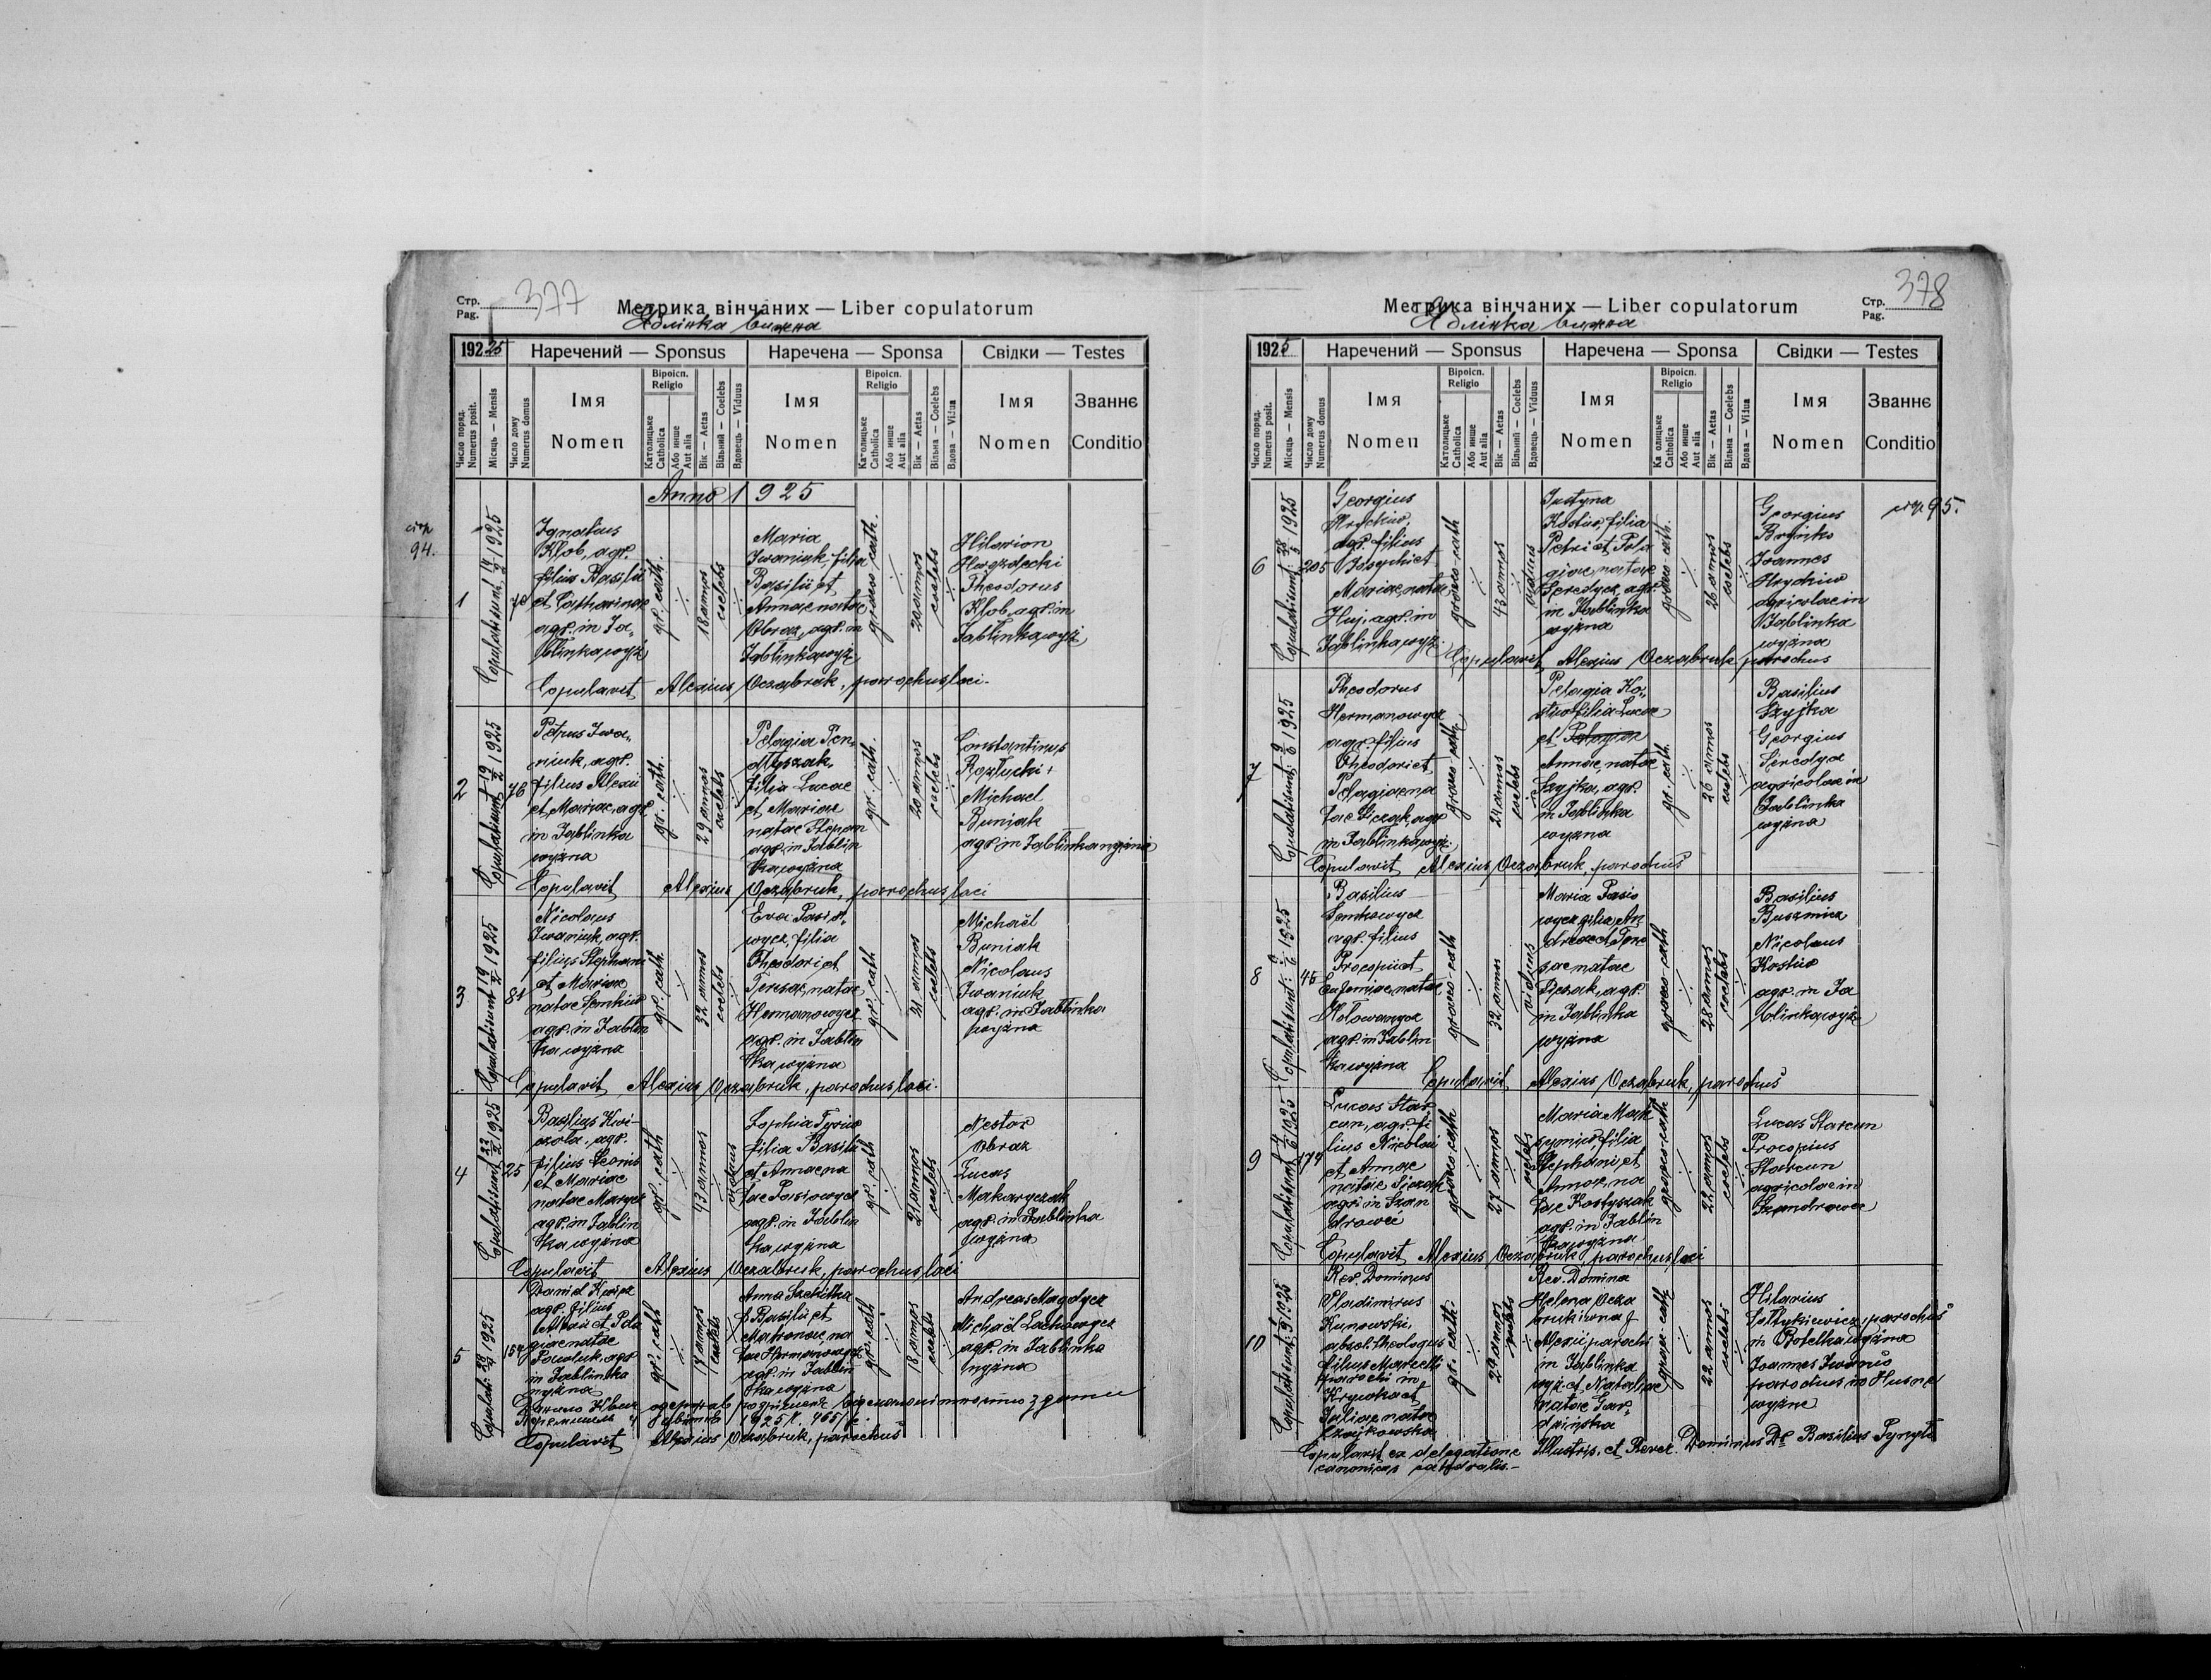 Стр.
Pag. 377
Метрика вінчаних — Liber copulatorum
Яблінка вижна
192 25
Наречений — Sponsus
Наречена — Sponsa
Свідки — Testes
Число поряд.
Numerus posit.
Місяць — Mensis
Число дому
Numerus domus
Імя
Nomen
Віроісп.
Religio
Католицьке
Catholica
Або инше
Aut alia
Вік — Aetas
Вільний — Coelebs
Вдовець — Viduus
Імя
Nomen
Віроісп.
Religio
Католицьке
Catholica
Або инше
Aut alia
Вік — Aetas
Вільна — Coelebs
Вдова — Vidua
Імя
Nomen
Званнє
Conditio
Anno 1925
стр
94.
1
Copulati sunt 1925
Ignatius
Klob, agr.
filius Basilii
et Catharinae
agr. in Ja„
blinka wyż
gr. cath.
18 annos
coelebs
Maria
Iwaniuk, filia
Basilii et
Annae natae
Obraz, agr. in
Jablinka wyż.
graeco cath.
20 annos
coelebs
Hilarion
Hwozdecki
Theodorus
Klob, agr. in
Jablinka wyż
Copulavit Alexius Oczabruk, parochus loci.
2
Copulati sunt 19/2 1925
76
Petrus Iwa„
niuk, agr.
filius Alexii
et Mariae, agr.
in Jablinka
wyżna
gr. cath.
29 annos
coelebs
Pelagia
filia Lucae
et Mariae
natae Stepan
agr. in Jablin
ka wyżna
gr. cath.
20 annos
coelebs
Constantinus
Rozłucki +
Michael
Buniak
agr. in Jablinka wyżna
Copulavit Alexius Oczabruk, parochus loci
3
Copulati sunt 19/2 1925
81
Nicolaus
Iwaniuk, agr.
filius Stephani
et Mariae
natae Senkiw
agr. in Jablin
ka wyżna
gr. cath
32 annos
coelebs
Eva Pasio„
wycz, filia
Theodori et
Teresae, natae
Hermanowycz
agr. in Jablin
ka wyżna
gr. cath
21 annos
coelebs
Michaël
Buniak
Nicolaus
Iwaniuk
agr. in Jablinka
wyżna
Copulavit Alexius Oczabruk, parochus loci.
4
Copulati sunt 22/2 1925
25
Basilius Kwi-
czola, agr.
filius Leonis
et Mariae
natae Marycz
agr. in Jablin
ka wyżna
gr. cath
43 annos
viduus
Sophia Tysiw
filia Basilii
et Annae na
tae Pasiowycz
agr. in Jablin
ka wyżna
gr. cath
21 annos
coelebs
Nestor
Obraz
Lucas
Makaryczak
agr. in Jablinka
wyżna
Copulavit Alexius Oczabruk, parochus loci
5
Copulati 1925
Daniel
agr. filius
Alexii et Pela
giae natae
Pawluk, agr
in Jablinka
wyżna
gr. cath
coelebs
Anna
f. Basilii et
Matronae, na
tae Hermanowycz
agr. in Jablin
ka wyżna
gr. cath
18 annos
coelebs
Andreas Magdycz
Michaël Lachowycz
agr. in Jablinka
wyżna
Данило
1925
Copulavit Alexius Oczabruk, parochus
Стр.
Pag. 378
Метрика вінчаних — Liber copulatorum
Яблінка вижна
192 5
Наречений — Sponsus
Наречена — Sponsa
Свідки — Testes
Число поряд.
Numerus posit.
Місяць — Mensis
Число дому
Numerus domus
Імя
Nomen
Віроісп.
Religio
Католицьке
Catholica
Або инше
Aut alia
Вік — Aetas
Вільний — Coelebs
Вдовець — Viduus
Імя
Nomen
Віроісп.
Religio
Ка олицьке
Catholica
Або инше
Aut alia
Вік — Aetas
Вільна — Coelebs
Вдова — Vidua
Імя
Nomen
Званнє
Conditio
стр 95.
6
Copulati sunt 1925
205
Georgius
Hryckiw,
agr. filius
Josephi et
Mariae, natae
Huj, agr. in
Jablinka wyż.
graeco-cath
43 annos
viduus
Justyna
Kostiw, filia
Petri et Pela
giae, natae
Seredycz, agr.
in Jablinka
wyżna
graeco cath.
26 annos
coelebs
Georgius
Bryńko
Joannes
Hryckiw
agricolae in
Jablinka
wyżna
Copulavit Alexius Oczabruk parochus
7
Copulati sunt 1925
Theodorus
Hermanowycz
agr. filius
Theodori et
Pelagiae na
tae Siczak, agr
in Jablinka wyż.
graeco cath.
24 annos
coelebs
Pelagia Ko„
stiw filia Lucae
et Pelagiae
Annae, natae
Szyjka, agr.
in Jablinka
wyżna
gr. cath.
26 annos
coelebs
Basilius
Szyjka
Georgius
Seredycz
agricolae in
Jablinka
wyżna
Copulavit Alexius Oczabruk, parochus
8
Copulati sunt 1925
45
Basilius
Senkowycz
agr. filius
Procopii et
Eufemiae, natae
Holowczycz
agr. in Jablin
ka wyżna
graeco-cath
32 annos
viduus
Maria Pasio
wycz, filia An
dreae et Tere
sae natae
Siczak, agr.
in Jablinka
wyżna
graeco-cath
28 annos
coelebs
Basilius
Buszmicz
Nicolaus
Kostiw
agr. in Ja
blinka wyż
Copulavit Alexius Oczabruk, parochus
9
Copulati sunt 1925
174
Lucas Star
cun, agr. fi
lius Nicolai
et Annae
natae Siczak
agr. in Szan
drowec
graeco-cath
27 annos
coelebs
Maria Mak
symiw, filia
Stephani et
Annae, na
tae Kostyszak
agr. in Jablin
ka wyżna
graeco-cath
22 annos
coelebs
Lucas Starcun
Procopius
Starcun
agricolae in
Szandrowec
Copulavit Alexius Oczabruk, parochus loci
10
Copulati sunt 1925
Rev. Dominus
Vladimirus
Kunowski,
absol. theologus
filius Marcelli
parochi in
Krywka et
Juliae natae
Czajkowska
gr. cath.
29 annos
coelebs
Rev. Domina
Helena Ocza
brukiwna f.
Alexii parochi
in Jablinka
wyż. et Nataliae
natae
graeco-cath
22 annos
coelebs
Hilarius
Soltykiewicz, parochus
in Botelka wyżna
Joannes Iwanis
parochus in Husne
wyżne
Copulavit ex delegatione Illustris. et Rever. Dominus Dr Basilius Pynyło
canonicus cathedralis.-